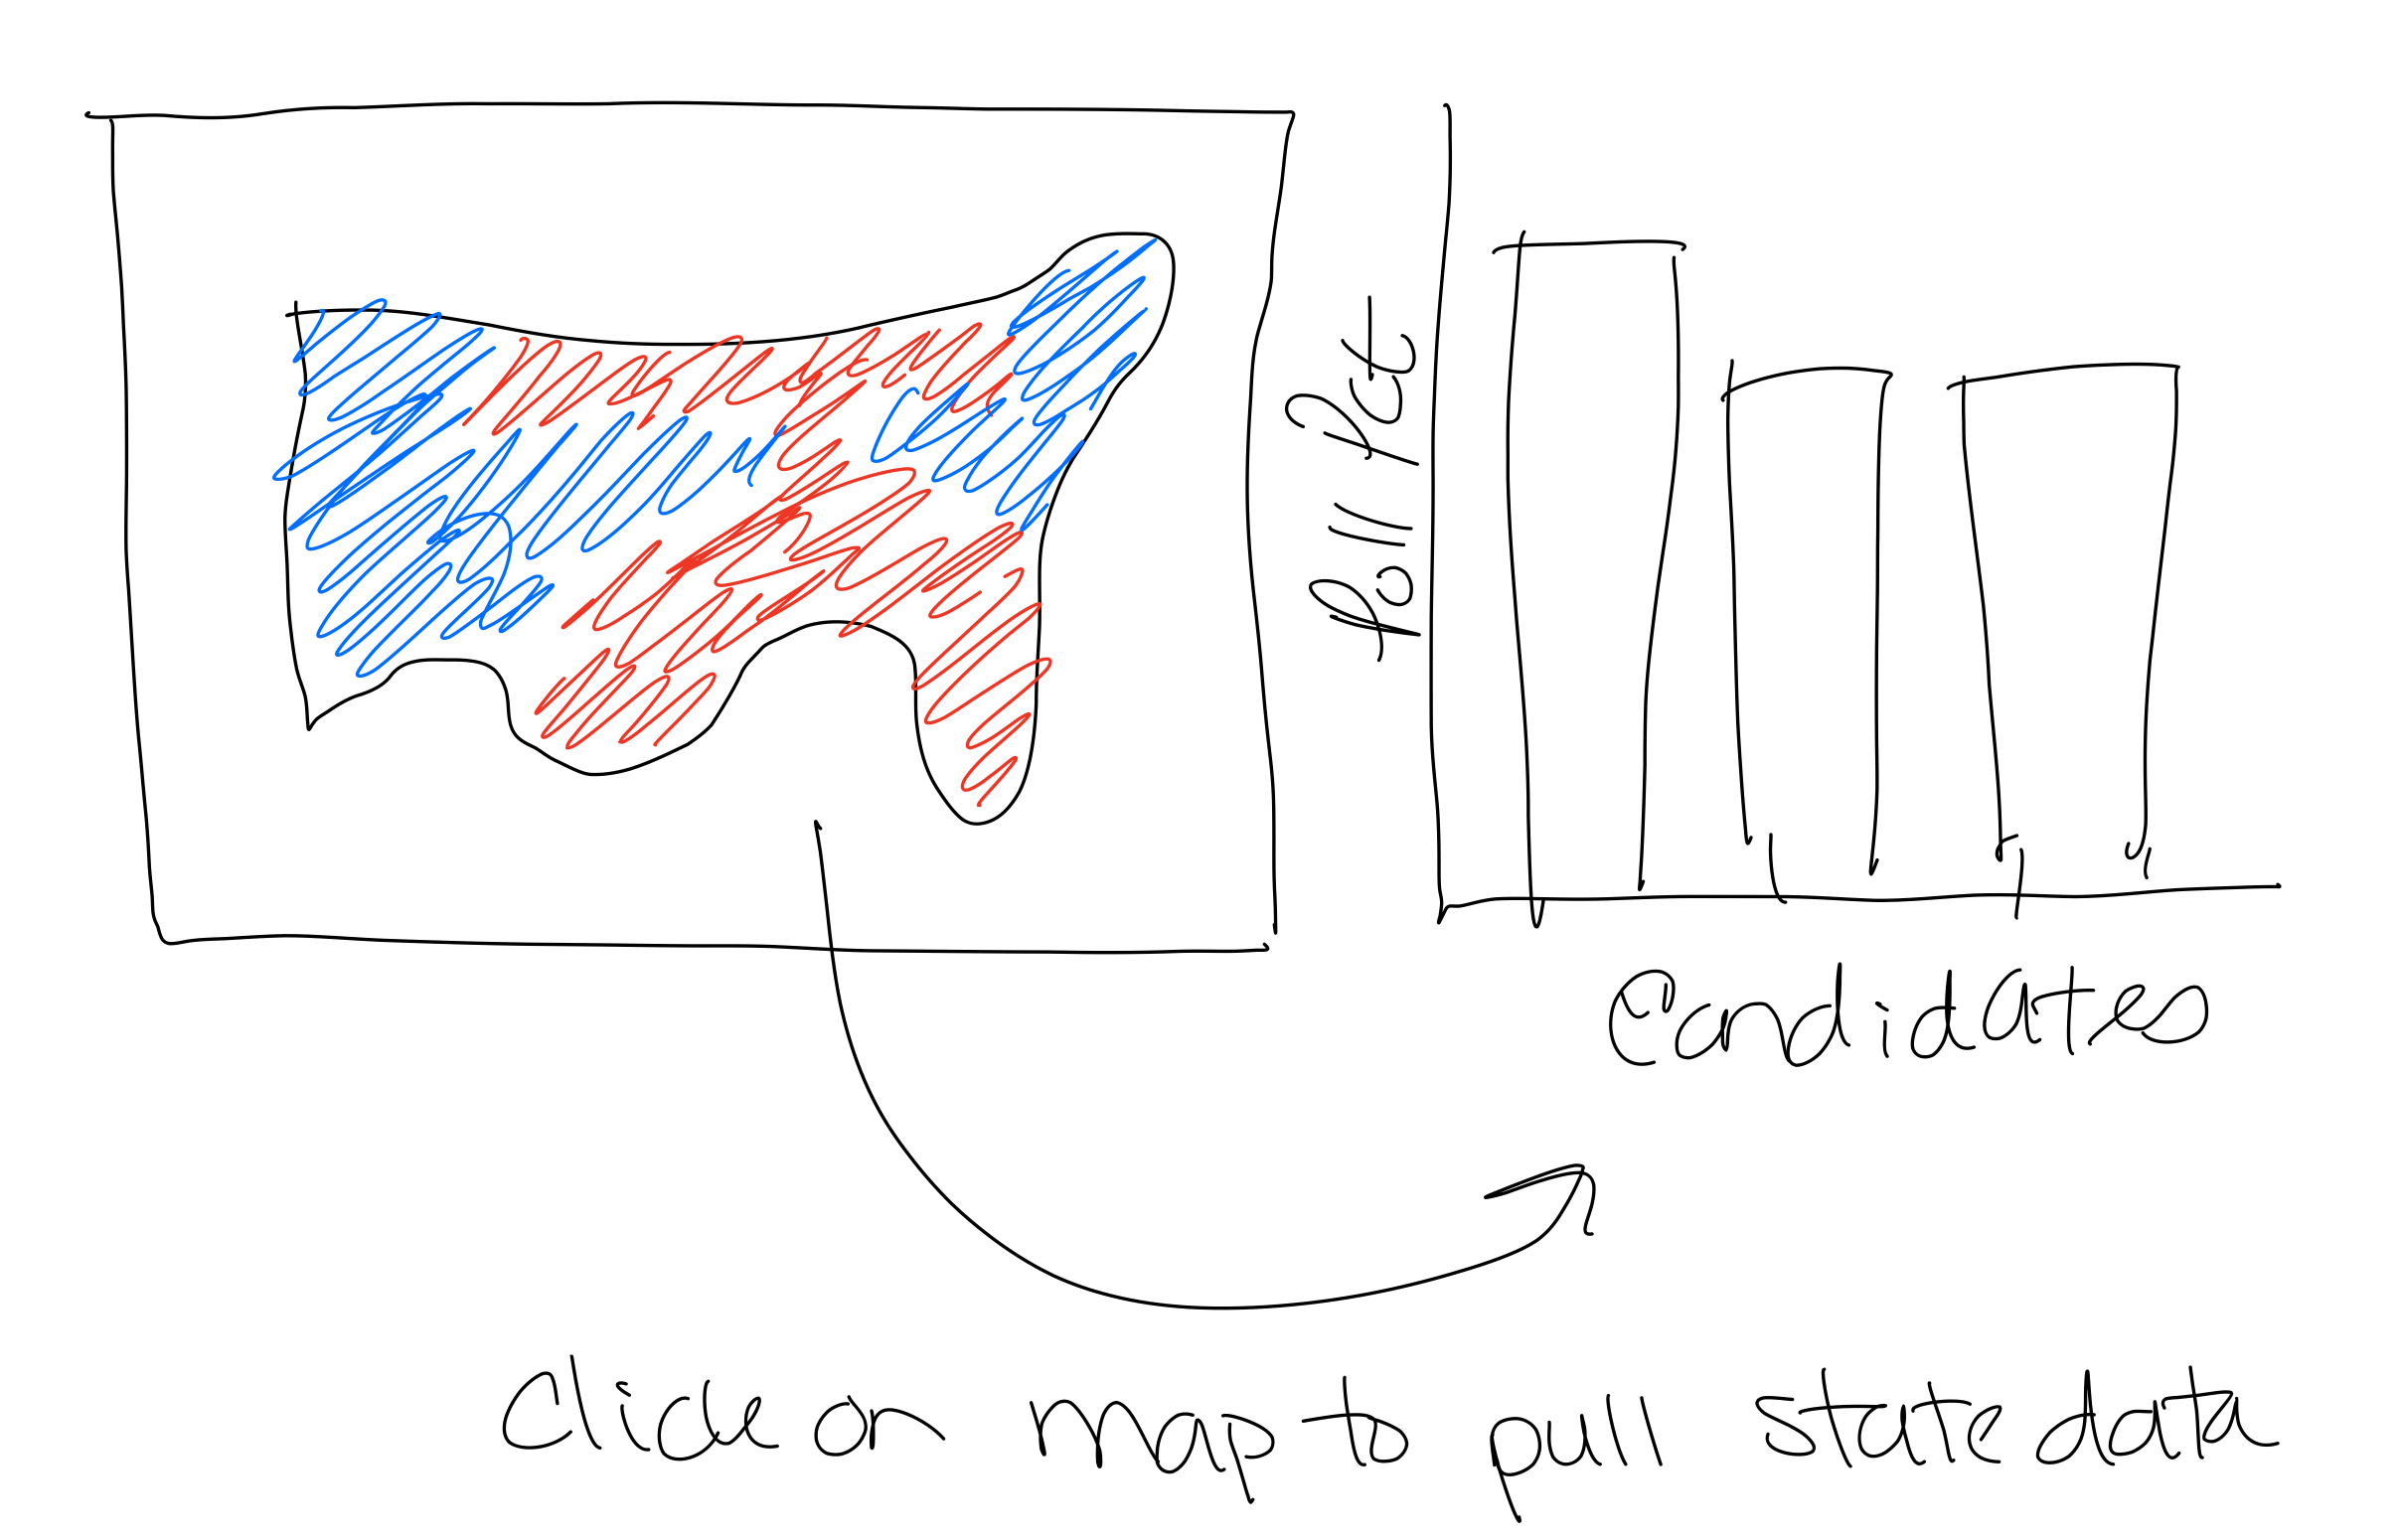 Poll Pct
Candidates
Click on map to pull state data